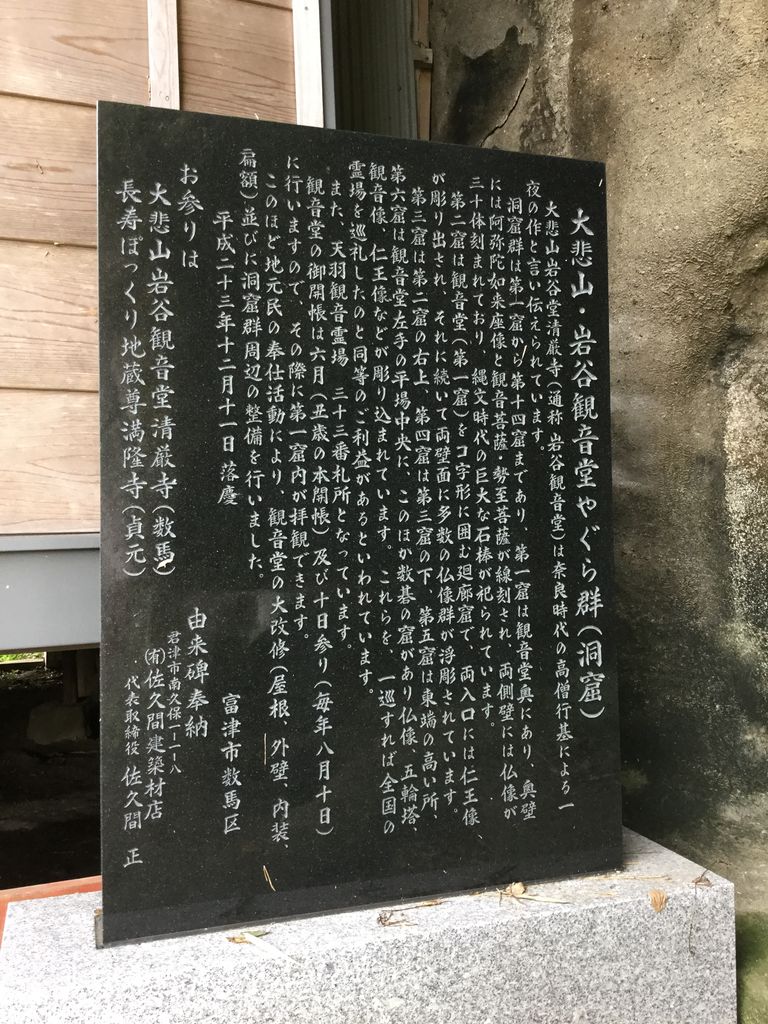 大悲山・岩谷観音堂やぐら群(洞窟)
大悲山岩谷堂清厳寺(通称 岩谷観音堂)は奈良時代の高僧行基による一
夜の作と言い伝えられています。
洞窟群は第一窟から第十四窟まであり、第一窟は観音堂奥にあり、奥壁
には阿弥陀如来座像と観音菩薩・勢至菩薩が線刻され、両側壁には仏像が
三十体刻まれており、縄文時代の巨大な石棒が祀られています。
第二窟は観音堂(第一窟)をコ字形に囲む廻廊窟で、両入口には仁王像、
が彫り出され、それに続いて両壁面に多数の仏像群が浮彫されています。
第三窟は第二窟の右上、第四窟は第三窟の下、第五窟は東端の高い所、
第六窟は観音堂左手の平場中央に、このほか数基の窟があり仏像、五輪塔、
観音像、仁王像などが彫り込まれています。これらを、一巡すれば全国の
霊場を巡礼したのと同等のご利益があるといわれています。
また、天羽観音霊場 三十三番札所となっています。
観音堂の御開帳は六月(丑歳の本開帳)及び十日参り(毎年八月十日)
に行いますので、その際に第一窟内が拝観できます。
このほど地元民の奉仕活動により、観音堂の大改修(屋根、外壁、内装、
扁額)並びに洞窟群周辺の整備を行いました。
平成二十三年十二月十一日 落慶
富津市数馬区
お参りは
大悲山岩谷観音堂清厳寺(数馬)
長寿ぽっくり地蔵尊満隆寺(貞元)
由来碑奉納
君津市南久保一-一-八
(有)佐久間建築材店
代表取締役 佐久間 正